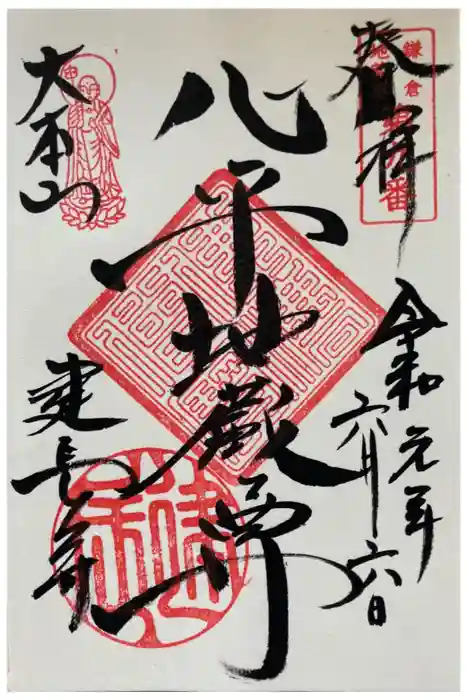 奉拝
鎌倉
令和元年
六月十六日
心平地蔵尊
大本山
建長寺